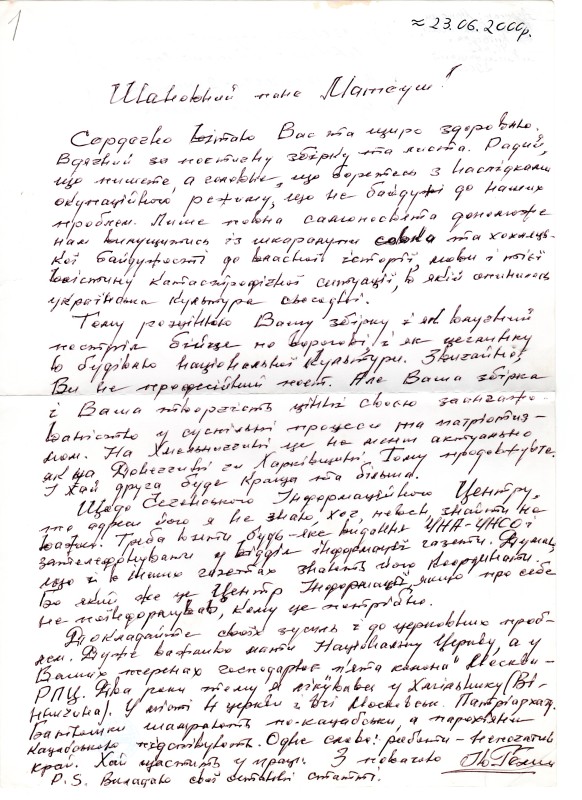 1
≈ 23.06. 2000р.
Шановний пане Матеуш!
Сердечно вітаю Вас та щиро здоровлю.
Вдячний за поетичну збірку та листа. Радий,
що пишете, а головне, що боретесь з наслідками
окупаційного режиму, що не байдужі до наших
проблем. Лише повна самопосвята допоможе
нам вилущитись із шкаралупи совка та хохляць-
кої байдужості до власної історії, мови і тієї
воістину катастрофічної ситуації, в якій опинилась
українська культура сьогодні.
Тому розцінюю Вашу збірку і як влучний
постріл бійця по ворогові і як цеглинку
в будівлю національної культури. Звичайно
Ви не професійний поет. Але Ваша збірка
і Ваша творчість цінні своєю заангажо-
ваністю у суспільні процеси та патріотиз-
мом. На Хмельниччині це не менш актуально
як на Донеччині чи Харківщині. Тому продовжуйте.
І хай друга буде краща та більша.
Щодо Чеченського Інформаційного Центру,
то адреси його я не знаю, хоч, певен, знайти не
важко. Треба взяти будь-яке видання УНА-УНСО і
зателефонувати у відділ інформації газети. Думаю,
що і в інших газетах знають його координати.
Бо який же це Центр Інформації, якщо про себе
не поінформував, кому це потрібно.
Докладайте своїх зусиль і до церковних проб-
лем. Дуже важливо мати Національну Церкву, а у
Ваших теренах господарює "п'ята колона" Москви –
РПЦ. Два роки тому я лікувався у Хмільнику (Ві-
нниччина). У місті 4 церкви і всі Московськ. Патріархату.
Батюшки шпарять по-кацапськи, а парохіяни
кацапською підспівують. Одне слово: роботи – непочатий
край. Хай щастить у праці. З повагою
P.S. Висилаю свої останні статті.